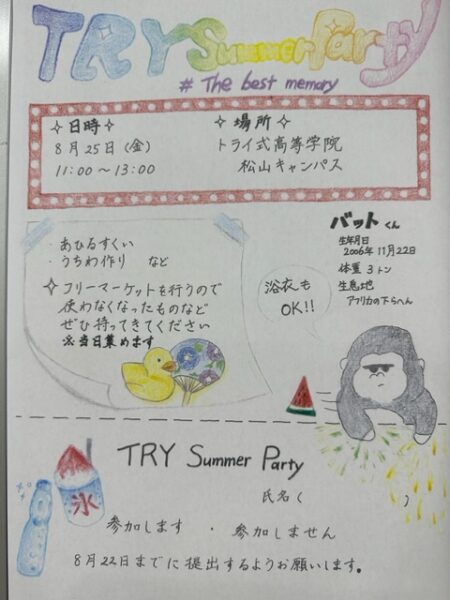 TRY Summer Party
# The best memory
✧日時✧
8月25日(金)
11:00〜13:00
✧場所✧
トライ式高等学院
松山キャンパス
・あひるすくい
・うちわ作り など
✧フリーマーケットを行うので
使わなくなったものなど
ぜひ持ってきてください
※当日集めます
バットくん
生年月日
2006年11月22日
体重 3トン
生息地
アフリカの下らへん
浴衣も
OK!!
氷
TRY Summer Party
氏名( )
参加します ・ 参加しません
8月22日までに提出するようお願いします。